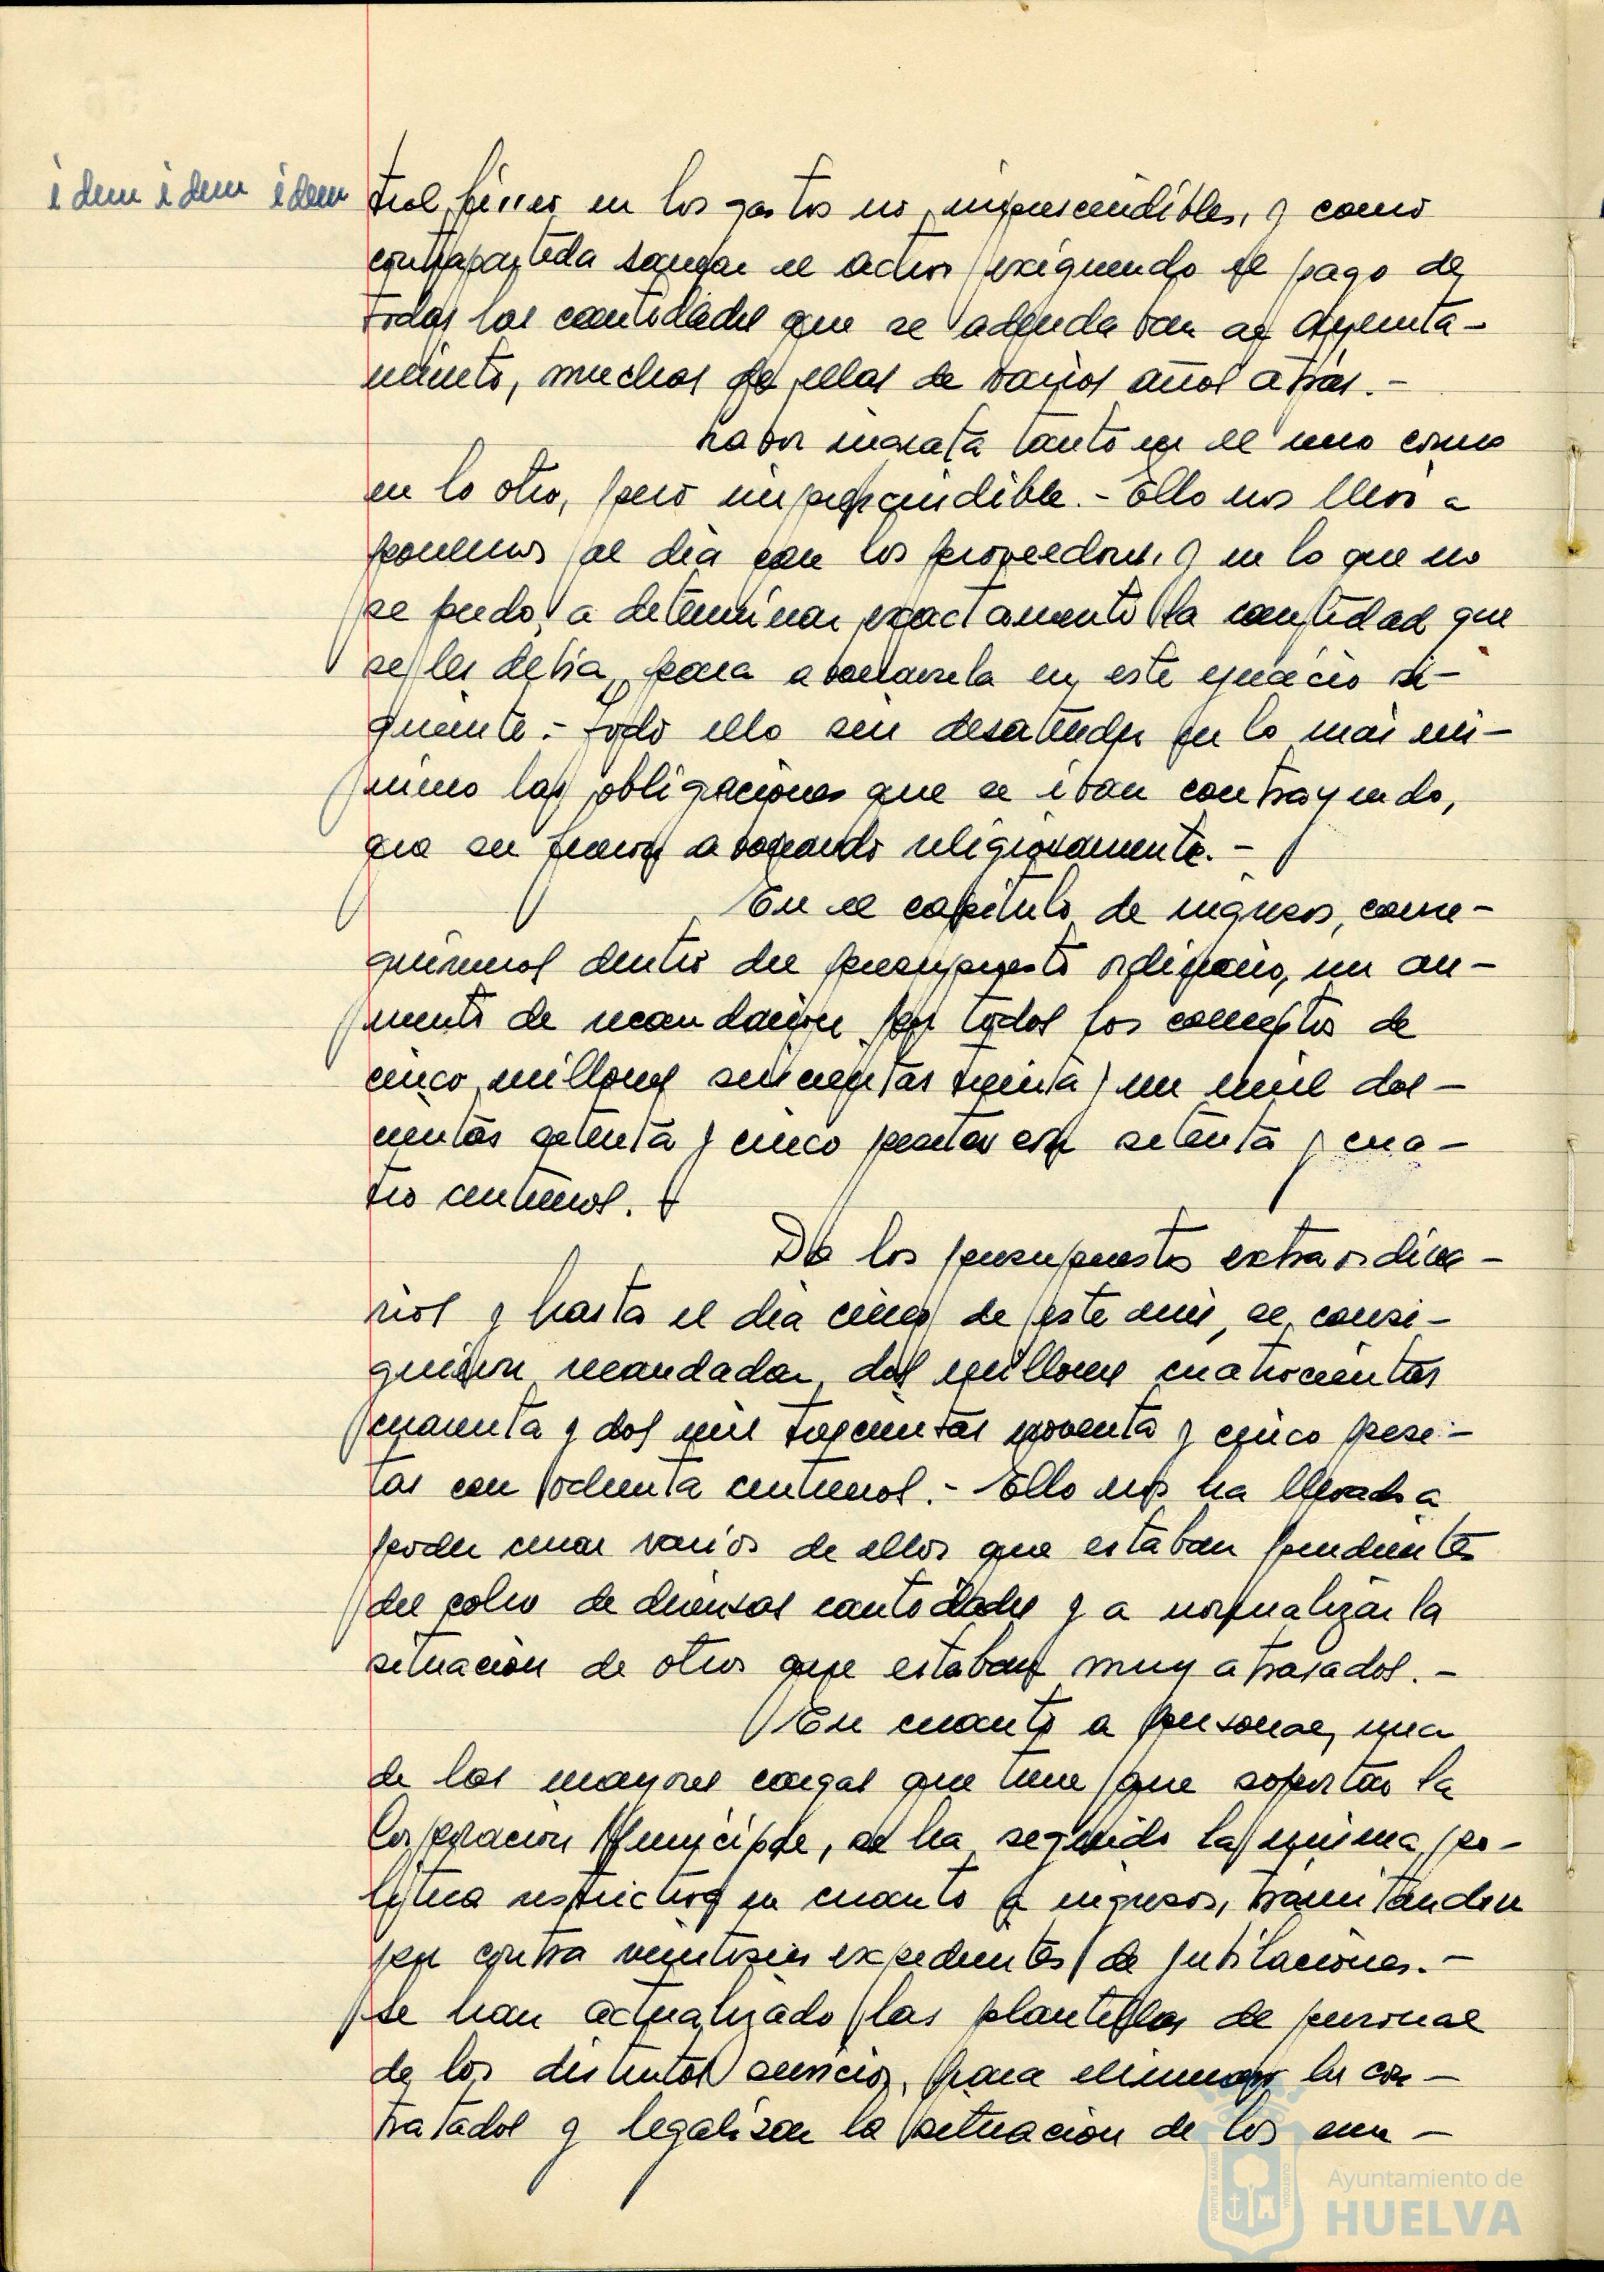 idem idem idem
trol férreo en los gastos no imprescindibles, y como
contrapartida sanear el activo exigiendo el pago de
todas las cantidades que se adeudaban al Ayunta-
miento, muchas de ellas de varios años atrás.-
Labor ingrata tanto en el uno como
en lo otro, pero imprescindible.- Ello nos llevó a
ponernos al día con los proveedores, y en lo que no
se pudo, a determinar exactamente la cantidad que
se les debía, para abonarsela en este ejercicio si-
guiente.- Todo ello sin desatender en lo más mí-
nimo las obligaciones que se iban contrayendo,
que se fueron abonando religiosamente.-
En el capítulo de ingresos, conse-
guimos dentro del presupuesto ordinario, un au-
mento de recaudación por todos los conceptos de
cinco millones seiscientas treinta y un mil dos-
cientas setenta y cinco pesetas con setenta y cua-
tro centimos.-
De los presupuestos extraordina-
rios y hasta el día cinco de este mes, se consi-
guieron recaudar dos millones cuatrocientas
cuarenta y dos mil trescientas noventa y cinco pese-
tas con ochenta centimos.- Ello nos ha llevado a
poder cerrar varios de ellos que estaban pendientes
del cobro de diversas cantidades y a normalizar la
situación de otros que estaban muy atrasados.-
En cuanto a personal, una
de las mayores cargas que tiene que soportar la
Corporación Municipal, se ha seguido la misma po-
lítica restrictiva en cuanto a ingresos, tramitandose
por contra veintiseis expedientes de jubilaciones.-
Se han actualizado las plantillas de personal
de los distintos servicios, para eliminar los con-
tratados y legalizar la situación de los mu-
Ayuntamiento de
HUELVA